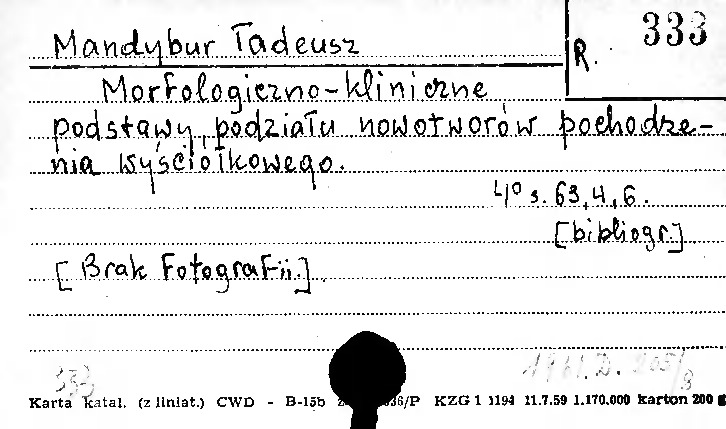 Mandybur Tadeusz
R. 333
Morfologiczno-kliniczne
podstawy podziału nowotworów pochodze-
nia wyściółkowego.
4° s. 63,4,6.
[bibliogr.]
[Brak Fotografii.]
333
1961.D. 205/3
Karta katal. (z liniat.) CWD - B-15b 36/P KZG 1 1194 11.7.59 1.170.000 karton 200 g